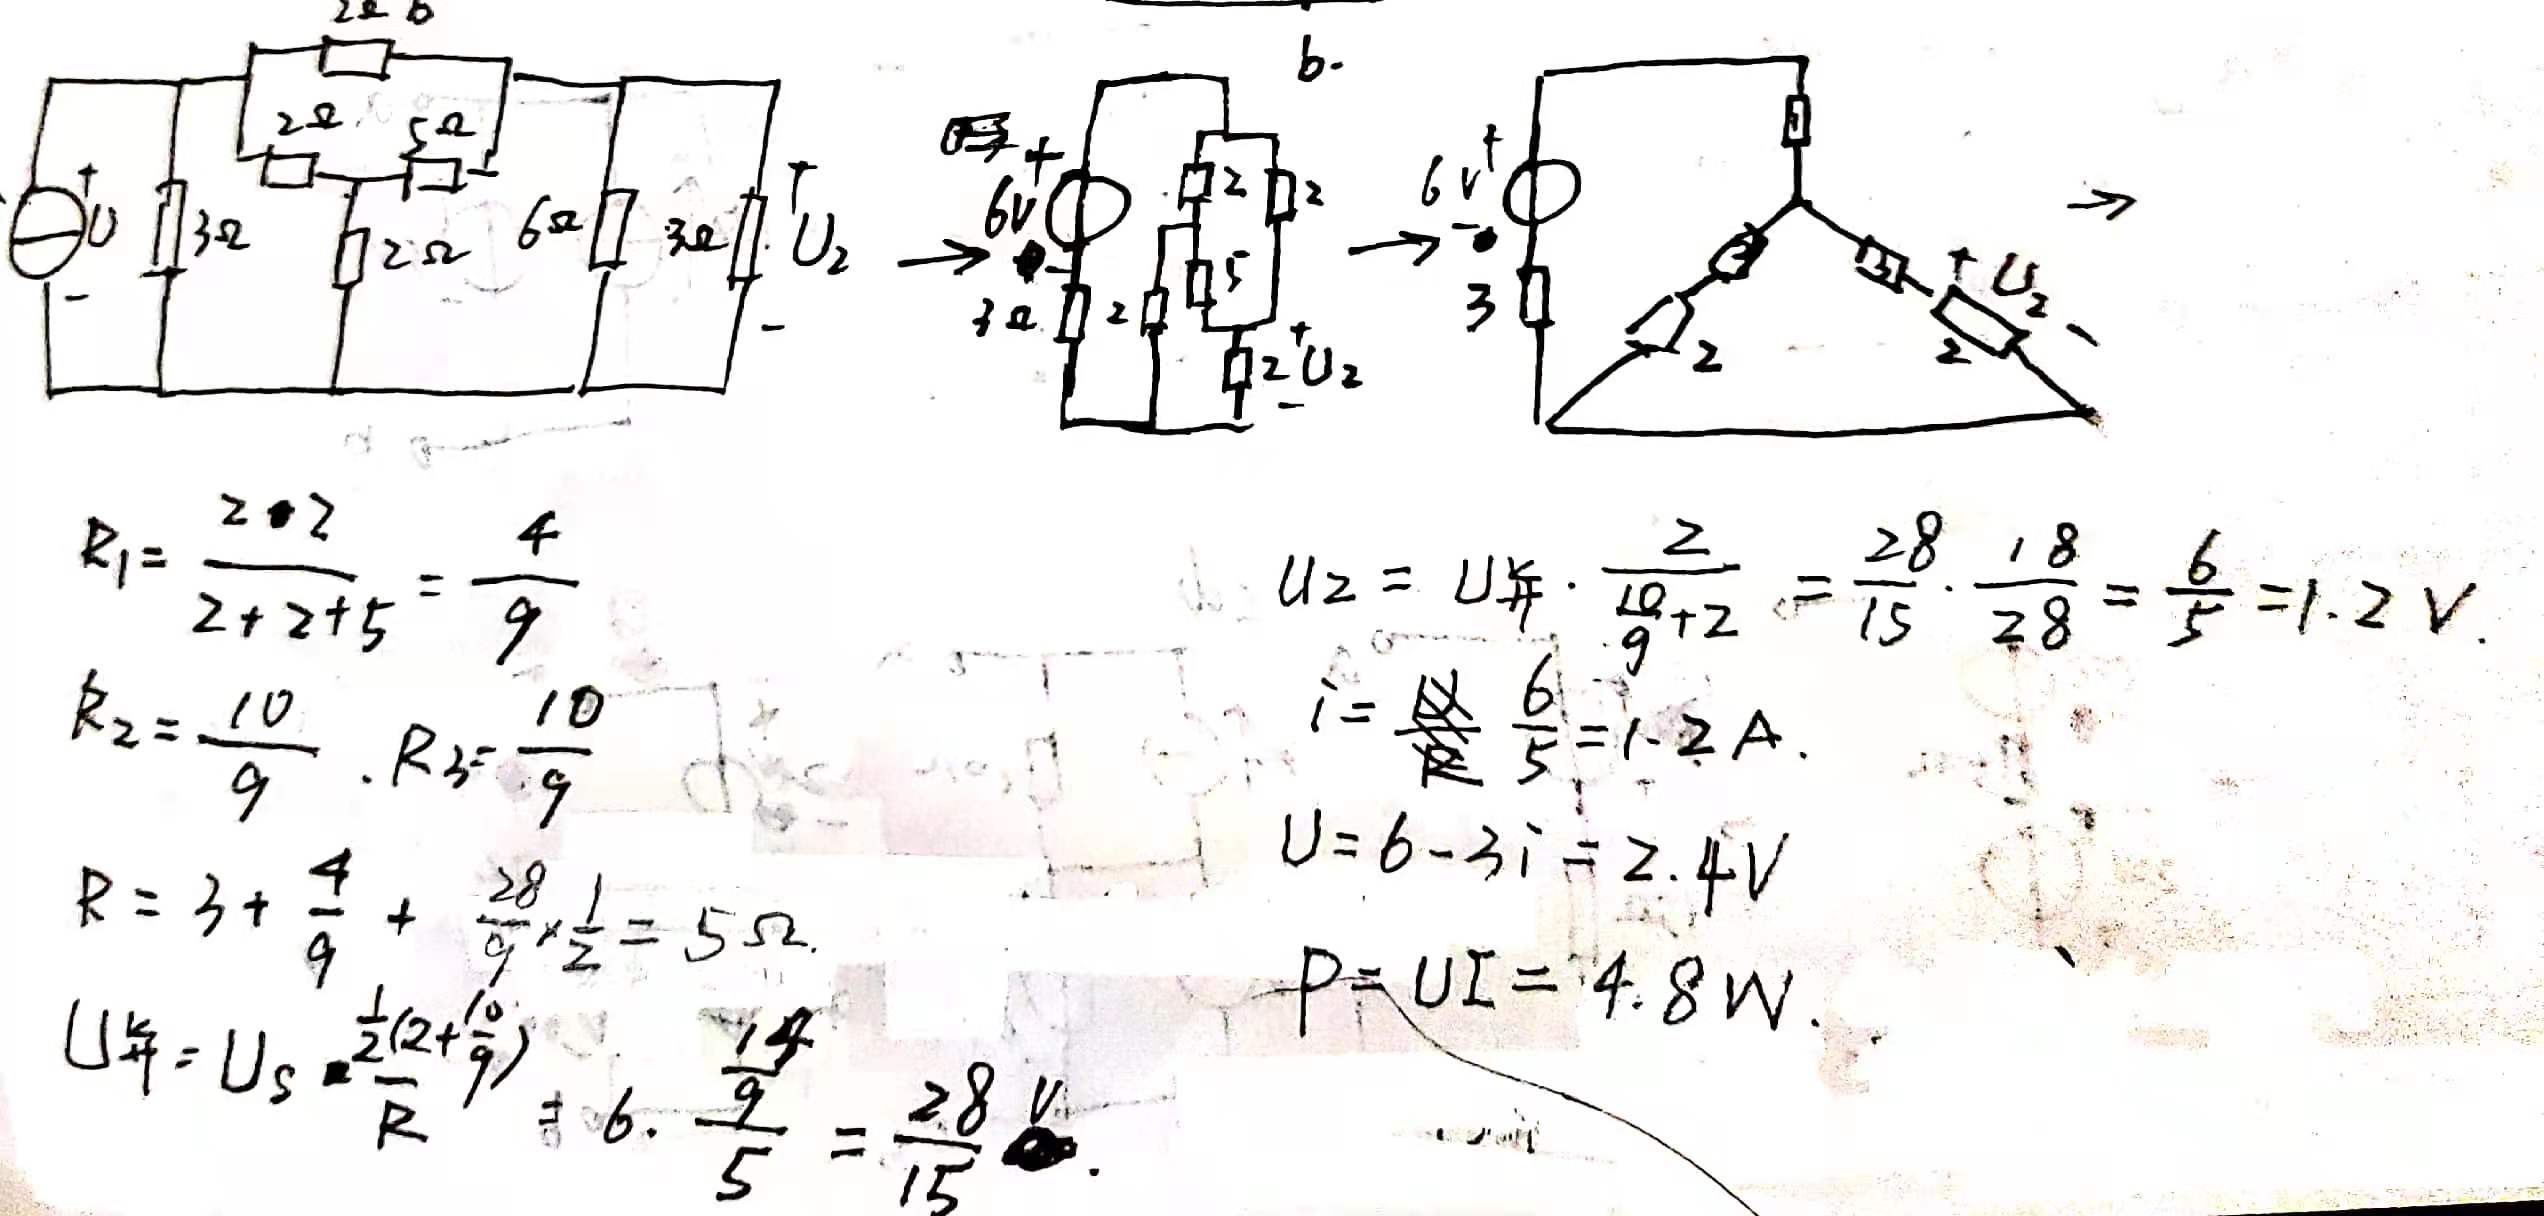 2Ω b
b.
2Ω
5Ω
+
U
-
3Ω
2Ω
6Ω
3Ω
+
U₂
-
→
+
6V
-
3Ω
2
2
2
5
2
+
U₂
-
→
6V
+
-
3
1
2
3
2
+ U₂ -
2
→
R₁ = (2·2)/(2+2+5) = 4/9
R₂ = 10/9 . R₃ = 10/9
R = 3 + 4/9 + 28/9 × 1/2 = 5Ω.
U并 = Us · ½(2+10/9)/R = 6 · (14/9)/5 = 28/15 V.
U₂ = U并 · 2/(10/9+2) = 28/15 · 18/28 = 6/5 = 1.2 V.
i = 6/5 = 1.2 A.
U = 6 - 3i = 2.4V
P = UI = 4.8W.